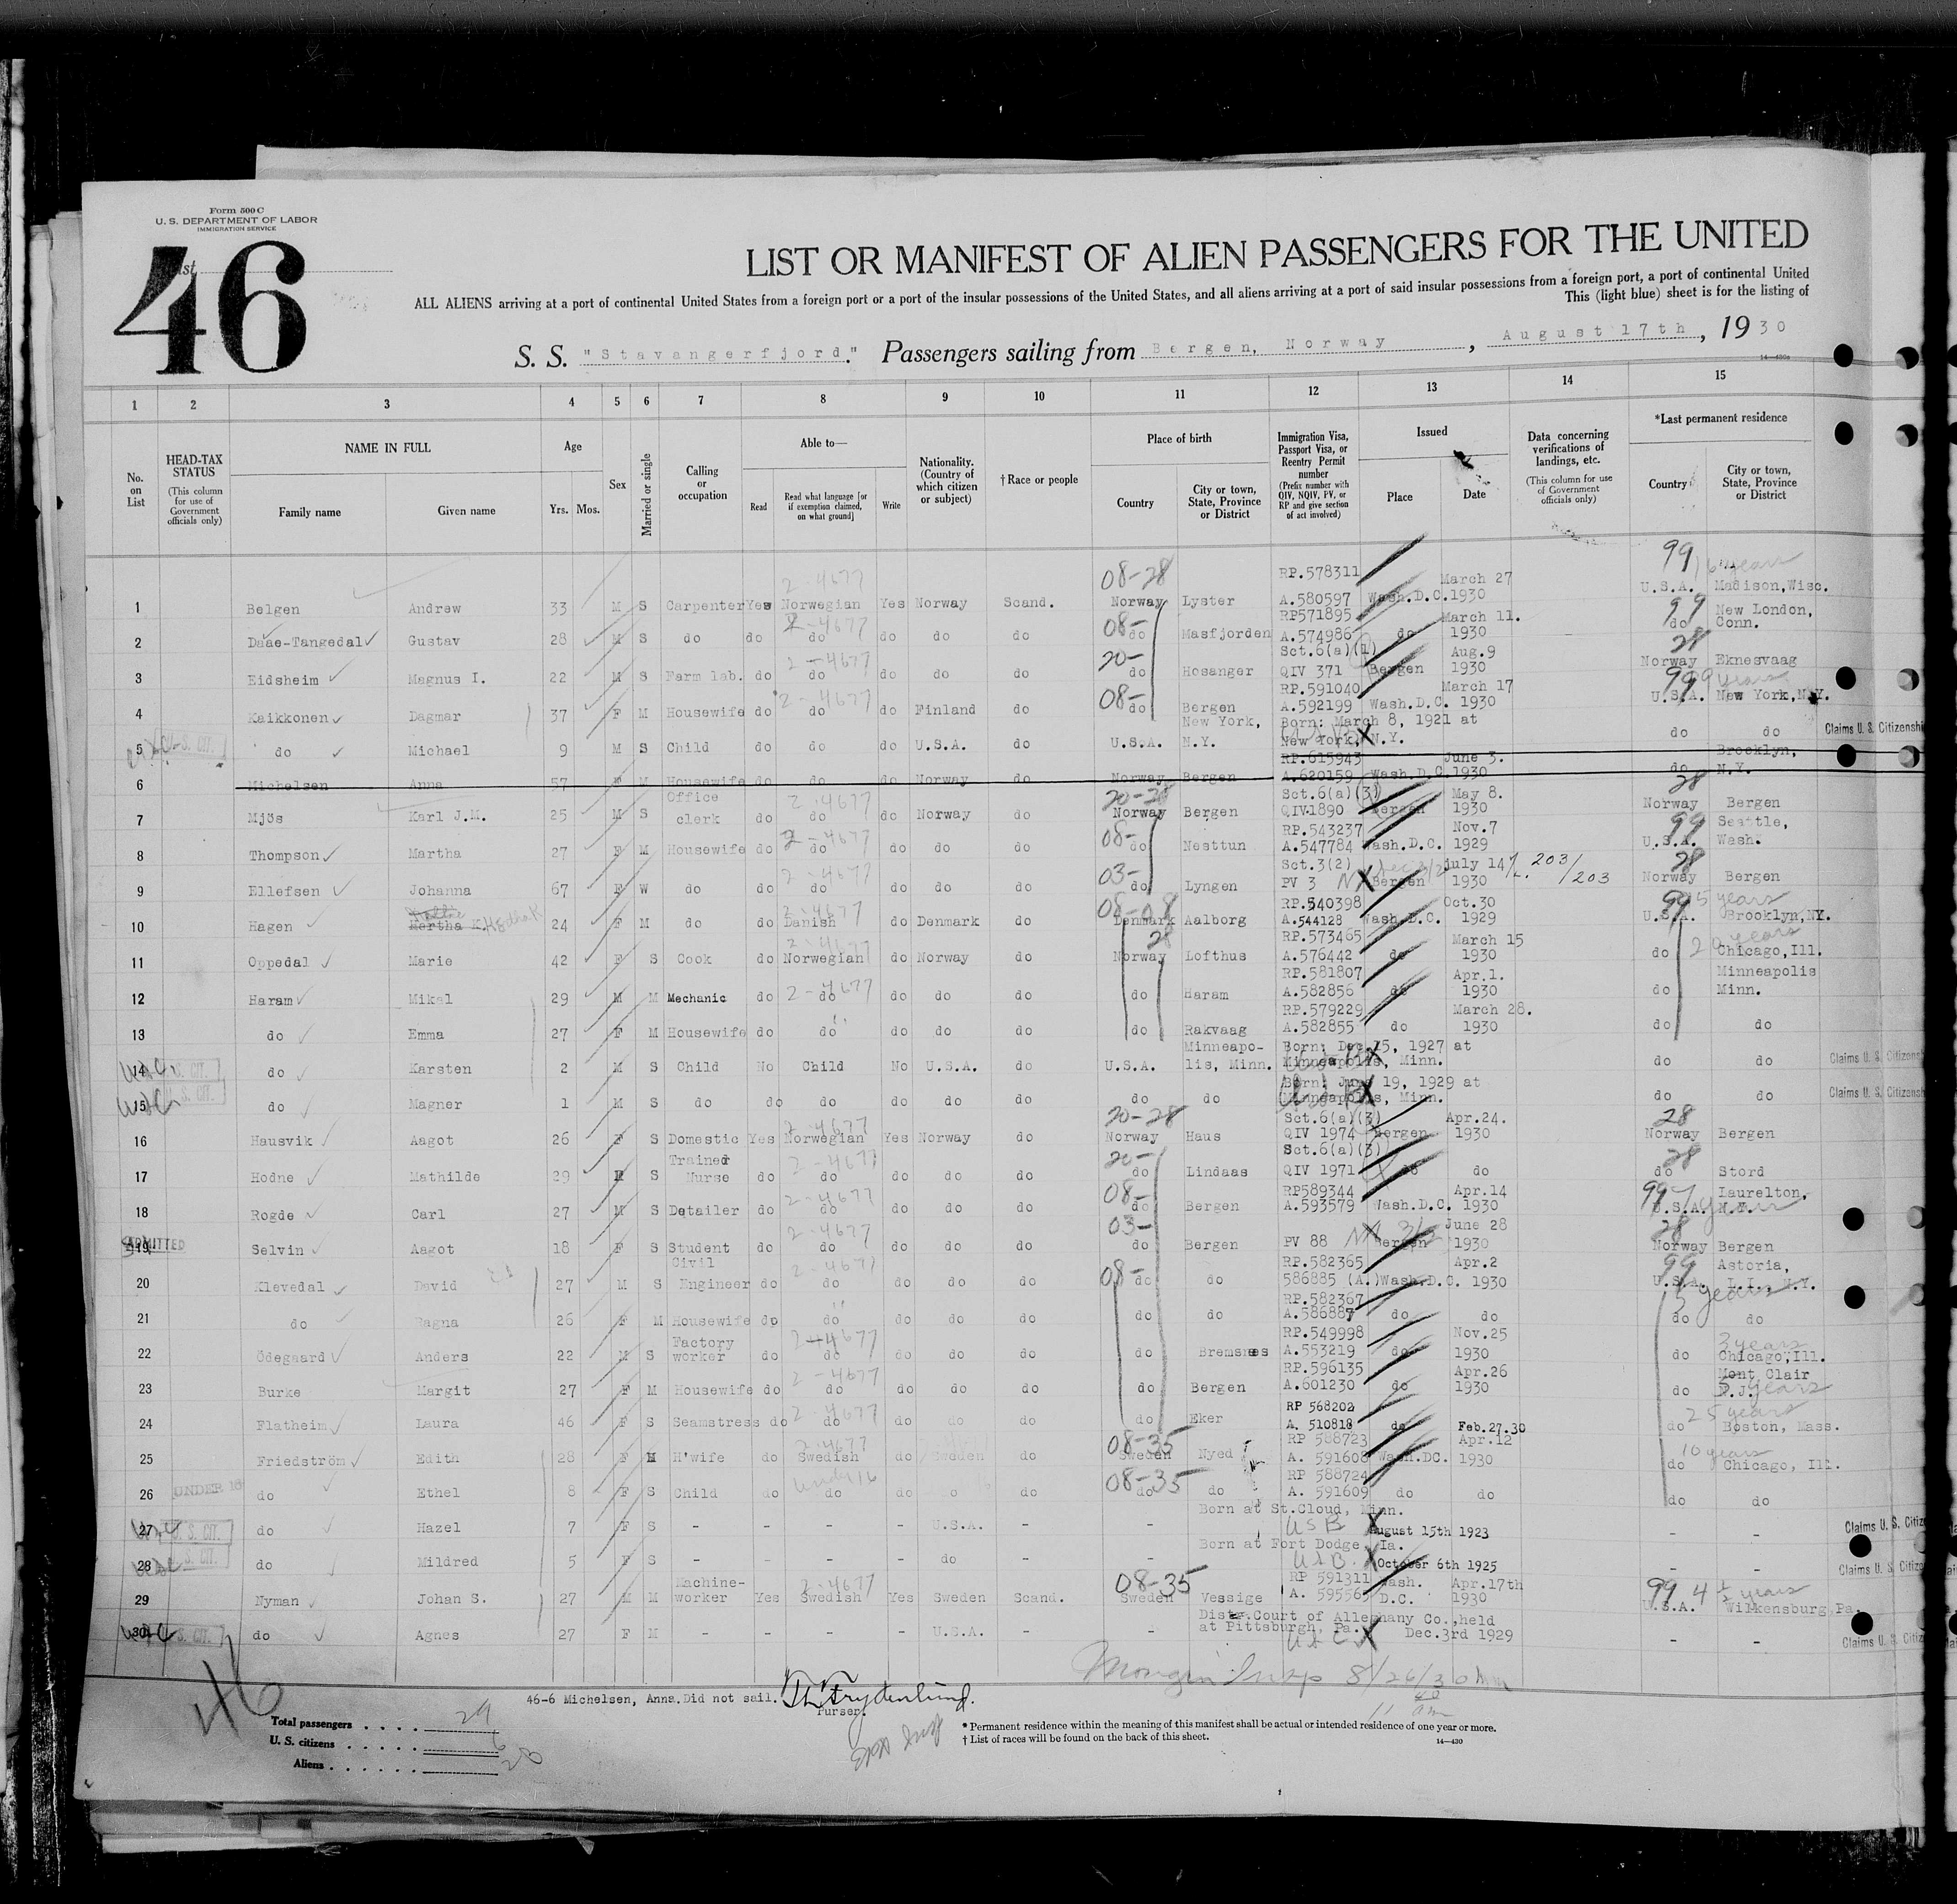 Form 500 C
U. S. DEPARTMENT OF LABOR
IMMIGRATION SERVICE
46
LIST OR MANIFEST OF ALIEN PASSENGERS FOR THE UNITED
ALL ALIENS arriving at a port of continental United States from a foreign port or a port of the insular possessions of the United States, and all aliens arriving at a port of said insular possessions from a foreign port, a port of continental United
This (light blue) sheet is for the listing of
S. S. "Stavangerfjord." Passengers sailing from Bergen, Norway, August 17th, 1930
1 2 3 4 5 6 7 8 9 10 11 12 13 14 15
No. on List
HEAD-TAX STATUS (This column for use of Government officials only)
NAME IN FULL Family name Given name
Age Yrs. Mos.
Sex
Married or single
Calling or occupation
Able to— Read Read what language [or if exemption claimed, on what ground] Write
Nationality. (Country of which citizen or subject)
†Race or people
Place of birth Country City or town, State, Province or District
Immigration Visa, Passport Visa, or Reentry Permit number (Prefix number with QIV, NQIV, PV, or RP and give section of act involved)
Issued Place Date
Data concerning verifications of landings, etc. (This column for use of Government officials only)
*Last permanent residence Country City or town, State, Province or District
1 Belgen Andrew 33 M S Carpenter Yes Norwegian Yes Norway Scand. 08-28 Norway Lyster RP.578311 A.580597 Wash.D.C. March 27 1930 99 U.S.A. Madison,Wisc.
2 Daae-Tangedal Gustav 28 M S do do do do do do 08- do Masfjorden RP571895 A.574986 do March 11. 1930 99 do New London, Conn.
3 Eidsheim Magnus I. 22 M S Farm lab. do do do do do 20- do Hosanger Sct.6(a)(1) QIV 371 Bergen Aug.9 1930 28 Norway Eknesvaag
4 Kaikkonen Dagmar 37 F M Housewife do do do Finland do 08- do Bergen RP.591040 A.592199 Wash.D.C. March 17 1930 99 U.S.A. New York,N.Y.
5 do Michael 9 M S Child do do do U.S.A. do U.S.A. New York, N.Y. Born: March 8, 1921 at New York, N.Y. do do Claims U. S. Citizenshi
6 Michelsen Anna 57 F M Housewife do do do Norway do Norway Bergen RP.615943 A.620159 Wash.D.C. June 3. 1930 do Brooklyn, N.Y.
7 Mjös Karl J.M. 25 M S Office clerk do do do Norway do 20-28 Norway Bergen Sct.6(a)(3) QIV1890 Bergen May 8. 1930 28 Norway Bergen
8 Thompson Martha 27 F M Housewife do do do do do 08- do Nesttun RP.543237 A.547784 Wash.D.C. Nov.7 1929 99 U.S.A. Seattle, Wash.
9 Ellefsen Johanna 67 F W do do do do do do 03- do Lyngen Sct.3(2) PV 3 Bergen july 14 1930 203/203 28 Norway Bergen
10 Hagen Martha K. 24 F M do do Danish do Denmark do 08-08 Denmark Aalborg RP.540398 A.544128 Wash.D.C. Oct.30 1929 99 5 years U.S.A. Brooklyn,NY.
11 Oppedal Marie 42 F S Cook do Norwegian do Norway do 28 Norway Lofthus RP.573465 A.576442 do March 15 1930 do 20 years Chicago,Ill.
12 Haram Mikal 29 M M Mechanic do do do do do do Haram RP.581807 A.582856 do Apr.1. 1930 do Minneapolis Minn.
13 do Emma 27 F M Housewife do do do do do do Rakvaag RP.579229 A.582855 do March 28. 1930 do do
14 do Karsten 2 M S Child No Child No U.S.A. do U.S.A. Minneapo- lis, Minn. Born: Dec 15, 1927 at Minneapolis, Minn. do do Claims U. S. Citizens
15 do Magner 1 M S do do do do do do do do Born: June 19, 1929 at Minneapolis, Minn. do do Claims U. S. Citizensh
16 Hausvik Aagot 26 F S Domestic Yes Norwegian Yes Norway do 20-28 Norway Haus Sct.6(a)(3) QIV 1974 Bergen Apr.24. 1930 28 Norway Bergen
17 Hodne Mathilde 29 F S Trained Nurse do do do do do 20- do Lindaas Sct.6(a)(3) QIV 1971 do do 28 do Stord
18 Rogde Carl 27 M S Detailer do do do do do 08- do Bergen RP589344 A.593579 Wash.D.C. Apr.14 1930 99 U.S.A. Laurelton,
ADMITTED 19 Selvin Aagot 18 F S Student do do do do do 03- do Bergen PV 88 Bergen June 28 1930 28 Norway Bergen
20 Klevedal David 27 M S Civil Engineer do do do do do 08- do do RP.582365 586885 (A.) Wash.D.C. Apr.2 1930 99 U.S.A. Astoria, L.I., N.Y.
21 do Ragna 26 F M Housewife do do do do do do do RP.582367 A.586887 do do 5 years do do
22 Ödegaard Anders 22 M S Factory worker do do do do do do Bremsnes RP.549998 A.553219 do Nov.25 1930 do 3 years Chicago,Ill.
23 Burke Margit 27 F M Housewife do do do do do do Bergen RP.596135 A.601230 do Apr.26 1930 do Mont Clair N.J. years
24 Flatheim Laura 46 F S Seamstress do do do do do do Eker RP 568202 A. 510818 do Feb.27.30 do 25 years Boston, Mass.
25 Friedström Edith 28 F M H'wife do Swedish do Sweden do 08-35 Sweden Nyed RP 588723 A. 591608 Wash.DC. Apr.12 1930 do 10 years Chicago, Ill.
26 UNDER 16 do Ethel 8 F S Child do under 16 do do do do 08-35 do do RP 588724 A. 591609 do do do do
27 U. S. CIT. do Hazel 7 F S - - - - U.S.A. - - Born at St.Cloud, Minn. USB August 15th 1923 - - Claims U. S. Citiz
28 S. CIT. do Mildred 5 F S - - - - do - - Born at Fort Dodge, Ia. USB. October 6th 1925 - - Claims U. S. Citize
29 Nyman Johan S. 27 M M Machine- worker Yes Swedish Yes Sweden Scand. 08-35 Sweden Vessige RP 591311 A. 595565 Wash. D.C. Apr.17th 1930 99 4 1/2 years U.S.A. Wilkensburg,Pa.
30 S. CIT. do Agnes 27 F M - - - - U.S.A. - - Distr.Court of Alleghany Co.,held at Pittsburgh, Pa. Dec.3rd 1929 - - Claims U. S. Citiz
8/26/30
46
46-6 Michelsen, Anna.Did not sail.
Purser.
Total passengers . . . . 29
U. S. citizens . . . . . . 6
Aliens . . . . . . .
* Permanent residence within the meaning of this manifest shall be actual or intended residence of one year or more.
† List of races will be found on the back of this sheet.
14—430